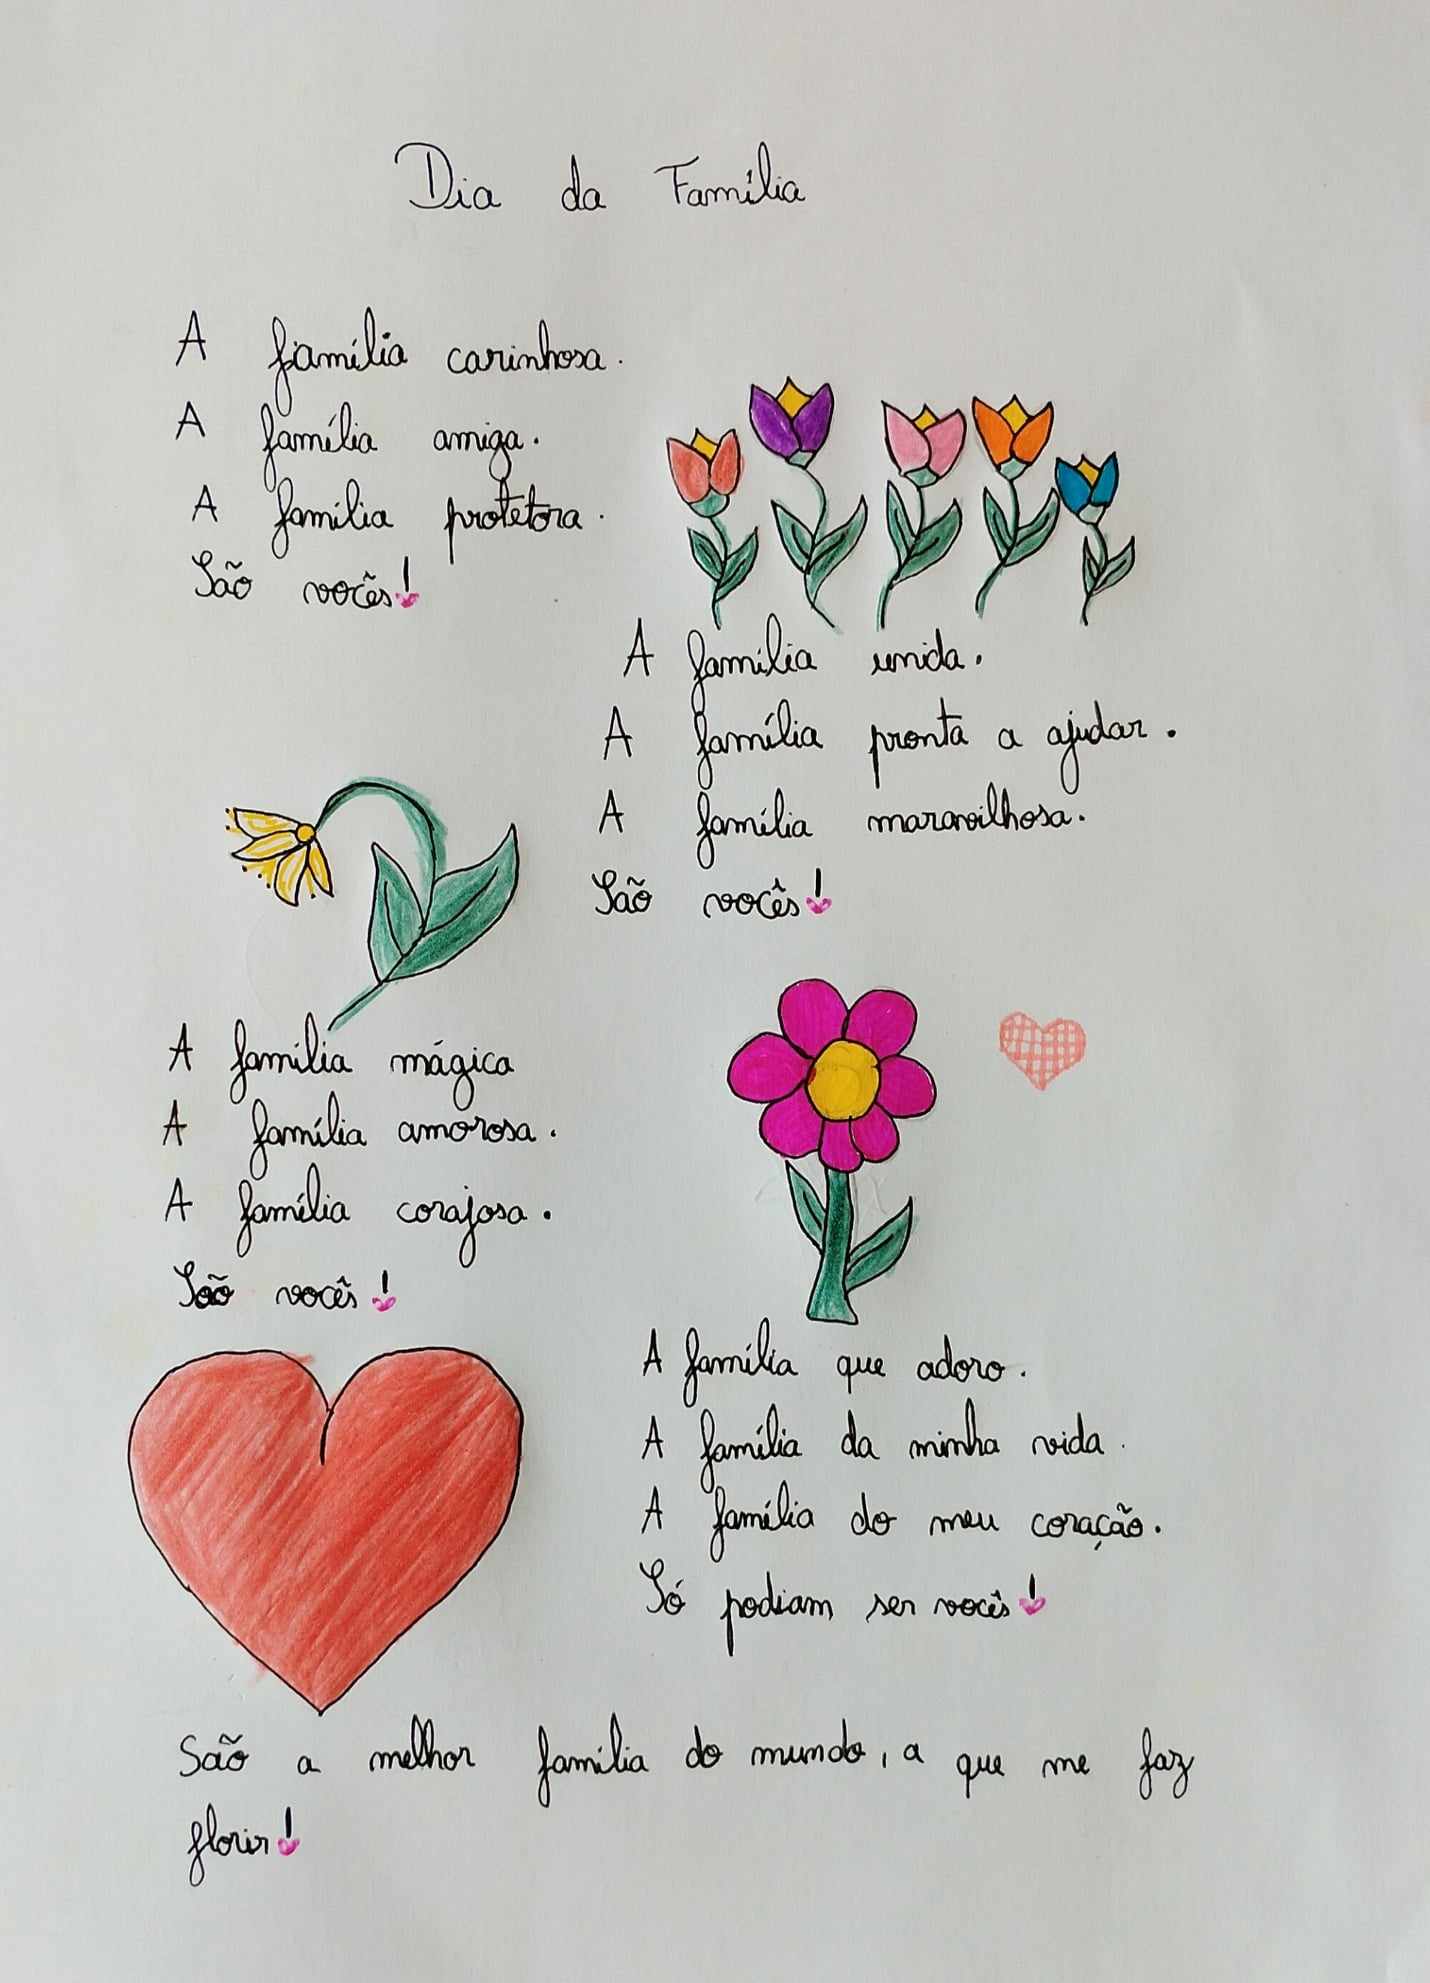 Dia da Família
A família carinhosa.
A família amiga.
A família protetora.
São vocês!
A família unida.
A família pronta a ajudar.
A família maravilhosa.
São vocês!
A família mágica
A família amorosa.
A família corajosa.
São vocês!
A família que adoro.
A família da minha vida.
A família do meu coração.
Só podiam ser vocês!
São a melhor família do mundo, a que me faz
florir!